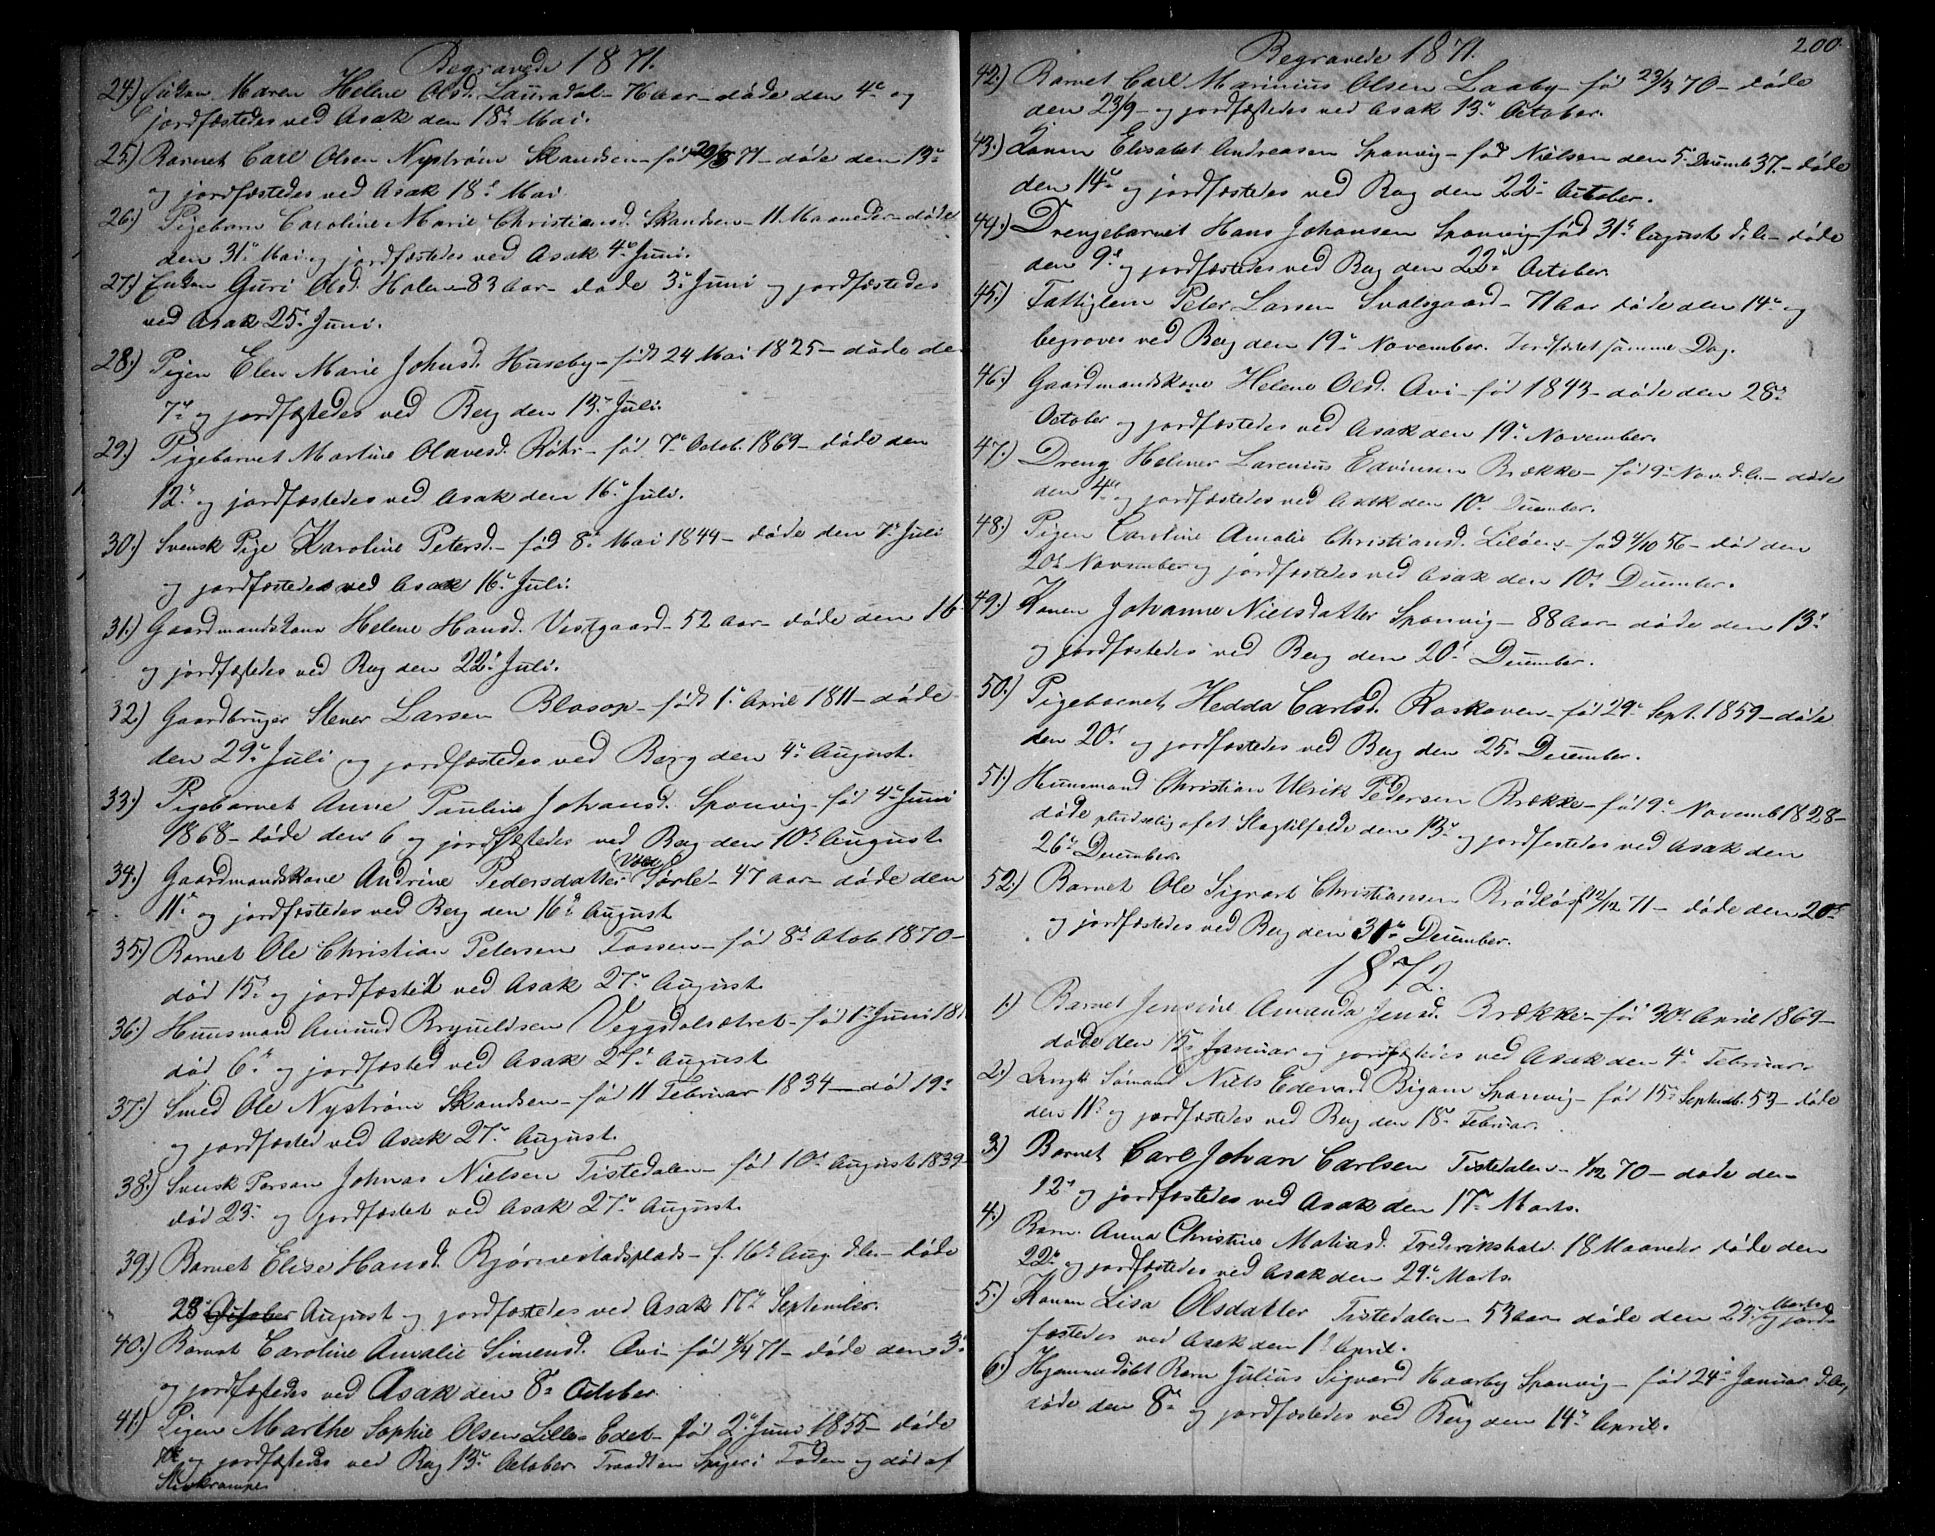 Begravede 1871.
24.) Enken Maren Helene Olsd. Lauradal - 71 aar - døde den 4de og
jordfæstedes ved Asak den 18de Mai.
25.) Barnet Carl Olsen Nystrøm Skandsen - født 71 - døde den 13de
og jordfæstedes ved Asak 18de Mai
26.) Pigebarn Caroline Marie Christiansd. Skandsen - 11 Maaneder - døde
den 31te Mai og jordfæstedes ved Asak 4de Juni.
27.) Enken Guri Olsd. Holen - 83 aar - døde 3de Juni og jordfæstedes
ved Asak 25de Juni.
28.) Pigen Elen Marie Johnsd. Huseby - født 24 Mai 1825 - døde den
7de og jordfæstedes ved Berg den 13de Juli.
29.) Pigebarnet Martine Olavesd. Røhr - født 7de Octob. 1869 - døde den
12te og jordfæstedes ved Asak den 16de Juli.
30.) Svensk Pige Karoline Petersd. - fød 8de Mai 1844 - døde den 7de Juli
og jordfæstedes ved Asak 16de Juli.
31.) Gaardmandskone Helene Hansd. Vestgaard - 52 aar - døde den 16
og jordfæstedes ved Berg den 22de Juli.
32.) Gaardbruger Stener Larsen Blasop - født 1te April 1811 - døde
den 29de Juli og jordfæstedes ved Berg den 4de August.
33.) Pigebarnet Anne Pauline Johansd. Sponvig - fød 4de Juni
1868 - døde den 6 og jordfæstedes ved Berg den 10de August.
34.) Gaardmandskone Andrine Pedersdatter Sørle - 47 aar - døde den
11te og jordfæstedes ved Berg den 16de August
35.) Barnet Ole Christian Petersen Fossen - fød 8de Octob. 1870 -
død 15de og jordfæstet ved Asak 27de August.
36.) Huusmand Amund Brynildsen Veggdalsætret - fød 1te Juni 181
død 6te og jordfæsted ved Asak 27de August
37.) Smed Ole Nystrøm Skandsen - fød 11 Februar 1834 - død 19de
og jordfæsted ved Asak 27de August.
38.) Svensk Person Johnas Nielsen Tistedalen - fød 10de August 1839 -
død 23de og jordfæstet ved Asak 27de August.
39.) Barnet Elise Hansd. Bjørnestadsplads - f. 16de Aug. d.A. - døde
28de October August og jordfæstedes ved Asak 17de September.
40.) Barnet Caroline Amalie Simensd. Avi - fød 4/4 71 - døde den 3de
og jordfæstedes ved Asak den 8de October
41.) Pigen Marthe Sophie Olsen Lille Edet - fød 2de Juni 1855 - døde
og jordfæstedes ved Berg 13de October. Traadt en Spiger i Foden og død af
Stivkrampe
200.
Begravede 1871.
42.) Barnet Carl Marinius Olsen Laaby - fød 23/3 70 - døde
den 23/9 - og jordfæstedes ved Asak 13de October.
43.) Konen Elisabet Andreasen Sponvig - født Nielsen den 5te Decemb. 37. - døde
den 14de og jordfæstedes ved Berg den 22de October.
44.) Drengebarnet Hans Johansen Sponvig - fød 31te August d.A. - døde
den 9de og jordfæstedes ved Berg den 22de October.
45.) Fattiglem Peter Larsen Svalsgaard - 71 aar døde den 14de og
begroves ved Berg den 19de November. Jordfæstet samme Dag.
46.) Gaardmandskone Helene Olsd. Avi - fød 1843 - døde den 28de
October og jordfæstedes ved Asak den 19de November.
47.) Dreng Helmer Larenius Edvinsen Brække - fød 9de Nov. d.A. - døde
den 4de og jordfæstedes ved Asak den 10de December.
48.) Pigen Caroline Amalie Christiansd. Liløen - fød 4/10 56 - død den
20de November og jordfæstedes ved Asak den 10de December.
49.) Konen Johanne Nielsdatter Sponvig - 88 aar - døde den 13de
og jordfæstedes ved Berg den 20de December.
50.) Pigebarnet Hedda Carlsd. Roskoven - fød 29de Sept. 1859 - døde
den 20de og jordfæstedes ved Berg den 25de December.
51.) Huusmand Christian Ulrik Pedersen Brække - fød 9de Novemb. 1828 -
døde pludselig af et Slagtilfelde den 13de og jordfæstedes ved Asak den
26de December.
52.) Barnet Ole Sigvart Christiansen Brødløs f 12/12 71 - døde den 20de
og jordfæstedes ved Berg den 31te December.
1872.
1.) Barnet Jensine Amanda Jensd. Brække - fød 30te April 1869 -
døde den 15de Januar og jordfæstedes ved Asak den 4de Februar.
2.) Sømand Niels Edevard Sponvig - fød 15de Septemb. 53 - døde
den 11te og jordfæstedes ved Berg den 18de Februar.
3.) Barnet Carl Johan Carlsen Tistedalen - 1/12 70 - døde den
12te og jordfæstedes ved Asak den 17de Marts.
4.) Barn. Anna Christine Matiasd. Frederikshald. 18 Maaneder døde den
22de og jordfæstedes ved Asak den 29de Marts.
5.) Konen Lisa Olsdatter Tistedalen - 53 aar døde den 23de Marts og jord-
fæstedes ved Asak den 1te April.
6.) Hjemmedøbt Barn Julius Sigvard Kaarby Sponvig - fød 24de Januar d.A.,
døde den 8de og jordfæstedes ved Berg den 14de April.